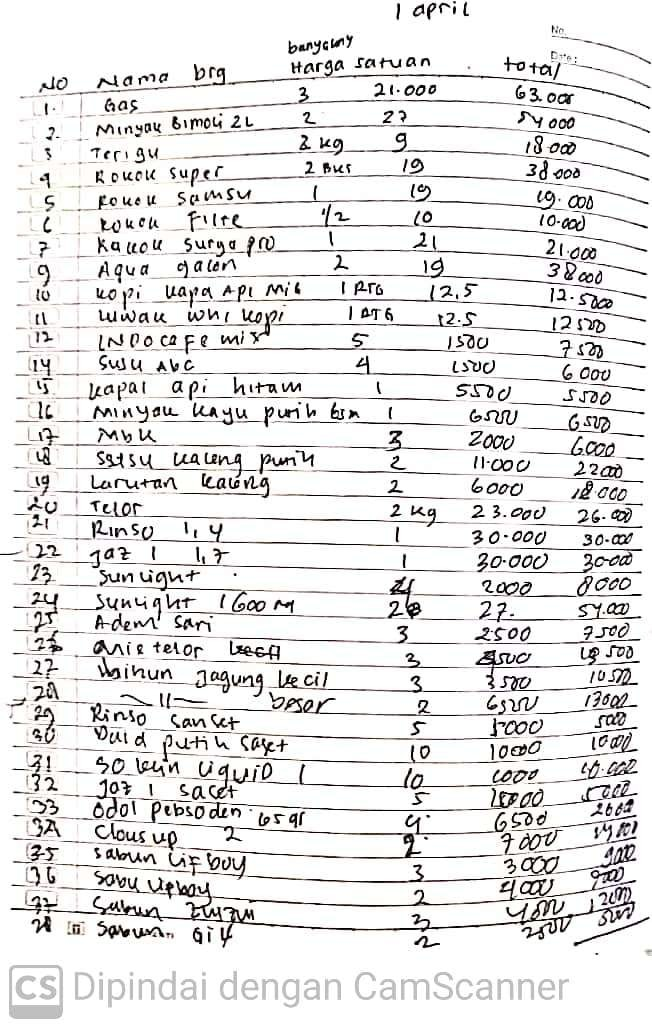 1 april
No.
Date:
banyakny
NO Nama brg Harga satuan total
1. Gas 3 21.000 63.000
2. Minyak Bimoli 2L 2 27 54000
3 Terigu 2 kg 9 18.000
4 Rokok super 2 Bks 19 38.000
5 Rokok Samsu 1 19 19.000
6 Rokok Filte 1/2 10 10.000
7 Rokok Surya pro 1 21 21.000
9 Aqua galon 2 19 38000
10 kopi kapa Api Mix 1 RTG 12,5 12.5000
11 luwak whi kopi 1 RTG 12.5 12500
12 INDOCAFE mix 5 1500 7500
14 Susu ABC 4 1500 6000
15 kapal api hitam 1 5500 5500
16 Minyak kayu putih 1 6500 6500
17 Mbk 3 2000 6000
18 kaleng putih 2 11.000 22000
19 Larutan kaleng 2 6000 12.000
20 Telor 2 kg 23.000 26.000
21 Rinso 1,4 1 30.000 30.000
22 Jaz 1 1,7 1 30.000 30.000
23 Sunlight 4 2000 8000
24 Sunlight 1600 M 2 27. 54.000
25 Adem Sari 3 2500 7500
26 Mie telor 3 500
27 Bihun Jagung kecil 3 3500 10500
28 -11- besar 2 6500 13000
29 Rinso Sanset 5 1000 5000
30 Daid putih saset 10 10000 10000
31 So klin liquid 1 10 1000 10.000
32 Jaz 1 sacet 5 5000
33 Odol pebsoden 65 gr 4 6500
34 Clous up 2 2 7000
35 Sabun lifboy 3 3000 9000
36 Sabu lipboy 2 4000
37 Sabun Zuyzui 3 4000 12000
28 Sabun Giv 2 2500 5000
CS Dipindai dengan CamScanner